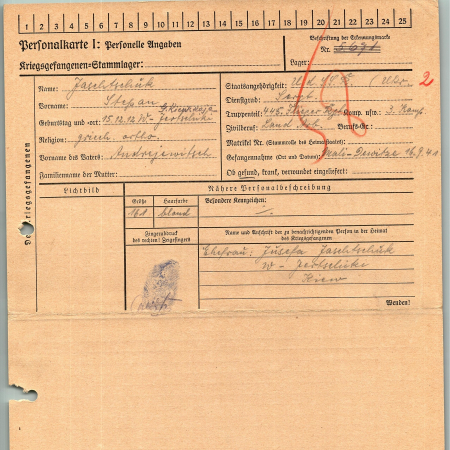 1 2 3 4 5 6 7 8 9 10 11 12 13 14 15 16 17 18 19 20 21 22 23 24 25
Personalkarte I: Personelle Angaben
Kriegsgefangenen-Stammlager:
Beschriftung der Erkennungsmarke
Nr.
Lager:
Des Kriegsgefangenen
Name: Jaschtschuk
Vorname: Stepan
Geburtstag und -ort: 15.12.12
Religion: griech. ortho.
Vorname des Vaters: Andrejewitsch
Familienname der Mutter:
Staatsangehörigkeit: U d S S R (Ukr. 2
Dienstgrad:
Truppenteil: 445. Komp. usw.: 3. Komp.
Zivilberuf: Berufs-Gr.:
Matrikel Nr. (Stammrolle des Heimatstaates):
Gefangennahme (Ort und Datum): 16.9.41
Ob gesund, krank, verwundet eingeliefert:
Lichtbild
Nähere Personalbeschreibung
Größe Haarfarbe
blond
Besondere Kennzeichen:
Fingerabdruck
des rechten! Zeigefingers
Name und Anschrift der zu benachrichtigenden Person in der Heimat
des Kriegsgefangenen
Ehefrau: Jusefa Jaschtschuk
Kiew
Wenden!